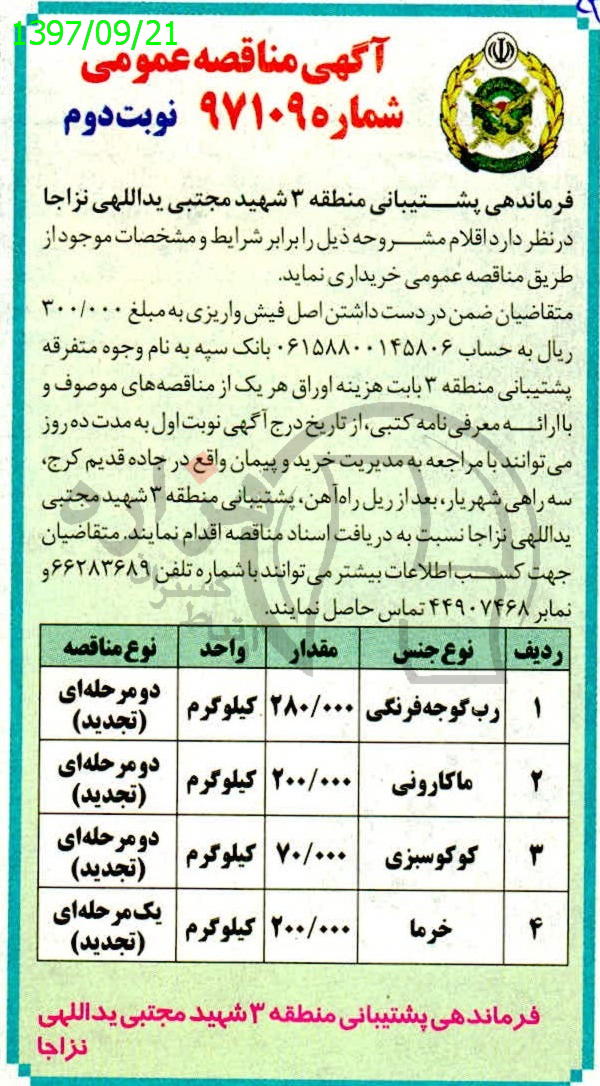 1397/09/21
آگهی مناقصه عمومی
شماره ۹۷۱۰۹ نوبت دوم
فرماندهی پشتیبانی منطقه ۳ شهید مجتبی یداللهی نزاجا
درنظر دارد اقلام مشروحه ذیل را برابر شرایط و مشخصات موجود از
طریق مناقصه عمومی خریداری نماید.
متقاضیان ضمن در دست داشتن اصل فیش واریزی به مبلغ ۳۰۰/۰۰۰
ریال به حساب ۰۶۱۵۸۸۰۰۱۴۵۸۰۶ بانک سپه به نام وجوه متفرقه
پشتیبانی منطقه ۳ بابت هزینه اوراق هر یک از مناقصه‌های موصوف و
با ارائه معرفی نامه کتبی، از تاریخ درج آگهی نوبت اول به مدت ده روز
می‌توانند با مراجعه به مدیریت خرید و پیمان واقع در جاده قدیم کرج،
سه راهی شهریار، بعد از ریل راه‌آهن، پشتیبانی منطقه ۳ شهید مجتبی
یداللهی نزاجا نسبت به دریافت اسناد مناقصه اقدام نمایند. متقاضیان
جهت کسب اطلاعات بیشتر می‌توانند با شماره تلفن ۶۶۲۸۳۶۸۹ و
نمابر ۴۴۹۰۷۴۶۸ تماس حاصل نمایند.
ردیف نوع جنس مقدار واحد نوع مناقصه
۱ رب گوجه‌فرنگی ۲۸۰/۰۰۰ کیلوگرم دو مرحله‌ای (تجدید)
۲ ماکارونی ۲۰۰/۰۰۰ کیلوگرم دو مرحله‌ای (تجدید)
۳ کوکوسبزی ۷۰/۰۰۰ کیلوگرم دو مرحله‌ای (تجدید)
۴ خرما ۲۰۰/۰۰۰ کیلوگرم یک مرحله‌ای (تجدید)
فرماندهی پشتیبانی منطقه ۳ شهید مجتبی یداللهی
نزاجا